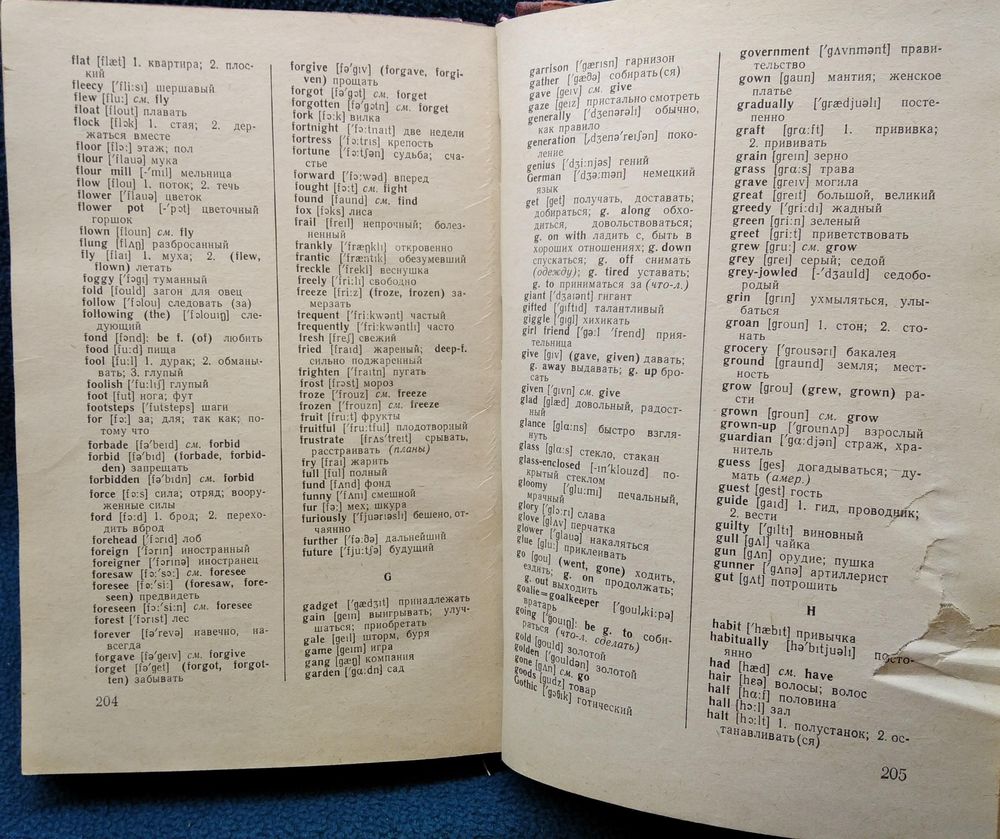 flat [flæt] 1. квартира; 2. плос-
кий
fleecy ['fli:sɪ] шершавый
flew [flu:] см. fly
float [flout] плавать
flock [flɔk] 1. стая; 2. дер-
жаться вместе
floor [flɔ:] этаж; пол
flour ['flauə] мука
flour mill [-'mɪl] мельница
flow [flou] 1. поток; 2. течь
flower ['flauə] цветок
flower pot [-'pɔt] цветочный
горшок
flown [floun] см. fly
flung [flʌŋ] разбросанный
fly [flaɪ] 1. муха; 2. (flew,
flown) летать
foggy ['fɔgɪ] туманный
fold [fould] загон для овец
follow ['fɔlou] следовать (за)
following (the) ['fɔlouɪŋ] сле-
дующий
fond [fɔnd]: be f. (of) любить
food [fu:d] пища
fool [fu:l] 1. дурак; 2. обманы-
вать; 3. глупый
foolish ['fu:lɪʃ] глупый
foot [fut] нога; фут
footsteps ['futsteps] шаги
for [fɔ:] за; для; так как; по-
тому что
forbade [fə'beɪd] см. forbid
forbid [fə'bɪd] (forbade, forbid-
den) запрещать
forbidden [fə'bɪdn] см. forbid
force [fɔ:s] сила; отряд; воору-
женные силы
ford [fɔ:d] 1. брод; 2. перехо-
дить вброд
forehead ['fɔrɪd] лоб
foreign ['fɔrɪn] иностранный
foreigner ['fɔrɪnə] иностранец
foresaw [fɔ:'sɔ:] см. foresee
foresee [fɔ:'si:] (foresaw, fore-
seen) предвидеть
foreseen [fɔ:'si:n] см. foresee
forest ['fɔrɪst] лес
forever [fə'revə] навечно, на-
всегда
forgave [fə'geɪv] см. forgive
forget [fə'get] (forgot, forgot-
ten) забывать
204
forgive [fə'gɪv] (forgave, forgi-
ven) прощать
forgot [fə'gɔt] см. forget
forgotten [fə'gɔtn] см. forget
fork [fɔ:k] вилка
fortnight ['fɔ:tnaɪt] две недели
fortress ['fɔ:trɪs] крепость
fortune ['fɔ:tʃən] судьба; сча-
стье
forward ['fɔ:wəd] вперед
fought [fɔ:t] см. fight
found [faund] см. find
fox [fɔks] лиса
frail [freɪl] непрочный; болез-
ненный
frankly ['fræŋklɪ] откровенно
frantic ['fræntɪk] обезумевший
freckle ['frekl] веснушка
freely ['fri:lɪ] свободно
freeze [fri:z] (froze, frozen) за-
мерзать
frequent ['fri:kwənt] частый
frequently ['fri:kwəntlɪ] часто
fresh [freʃ] свежий
fried [fraɪd] жареный; deep-f.
сильно поджаренный
frighten ['fraɪtn] пугать
frost [frɔst] мороз
froze ['frouz] см. freeze
frozen ['frouzn] см. freeze
fruit [fru:t] фрукты
fruitful ['fru:tful] плодотворный
frustrate [frʌs'treɪt] срывать,
расстраивать (планы)
fry [fraɪ] жарить
full [ful] полный
fund [fʌnd] фонд
funny ['fʌnɪ] смешной
fur [fə:] мех; шкура
furiously ['fjuərɪəslɪ] бешено, от-
чаянно
further ['fə:ðə] дальнейший
future ['fju:tʃə] будущий
G
gadget ['gædʒɪt] принадлежать
gain [geɪn] выигрывать; улуч-
шаться; приобретать
gale [geɪl] шторм, буря
game [geɪm] игра
gang [gæŋ] компания
garden ['gɑ:dn] сад
garrison ['gærɪsn] гарнизон
gather ['gæðə] собирать(ся)
gave [geɪv] см. give
gaze [geɪz] пристально смотреть
generally ['dʒenərəlɪ] обычно,
как правило
generation [ˌdʒenə'reɪʃən] поко-
ление
genius ['dʒi:njəs] гений
German ['dʒə:mən] немецкий
язык
get [get] получать, доставать;
добираться; g. along обхо-
диться, довольствоваться;
g. on with ладить с, быть в
хороших отношениях; g. down
спускаться; g. off снимать
(одежду); g. tired уставать;
g. to приниматься за (что-л.)
giant ['dʒaɪənt] гигант
gifted ['gɪftɪd] талантливый
giggle ['gɪgl] хихикать
girl friend ['gə:l 'frend] прия-
тельница
give [gɪv] (gave, given) давать;
g. away выдавать; g. up бро-
сать
given ['gɪvn] см. give
glad [glæd] довольный, радост-
ный
glance [glɑ:ns] быстро взгля-
нуть
glass [glɑ:s] стекло, стакан
glass-enclosed [-ɪn'klouzd] по-
крытый стеклом
gloomy ['glu:mɪ] печальный,
мрачный
glory ['glɔ:rɪ] слава
glove [glʌv] перчатка
glower ['glauə] накаляться
glue [glu:] приклеивать
go [gou] (went, gone) ходить,
ездить; g. on продолжать;
g. out выходить
goalie=goalkeeper ['goulˌki:pə]
вратарь
going ['gouɪŋ]: be g. to соби-
раться (что-л. сделать)
gold [gould] золотой
golden ['gouldən] золотой
gone [gʌn] см. go
goods [gudz] товар
Gothic ['gɔθɪk] готический
government ['gʌvnmənt] прави-
тельство
gown [gaun] мантия; женское
платье
gradually ['grædjuəlɪ] посте-
пенно
graft [grɑ:ft] 1. прививка;
2. прививать
grain [greɪn] зерно
grass [grɑ:s] трава
grave [greɪv] могила
great [greɪt] большой, великий
greedy ['gri:dɪ] жадный
green [gri:n] зеленый
greet [gri:t] приветствовать
grew [gru:] см. grow
grey [greɪ] серый; седой
grey-jowled [-'dʒauld] седобо-
родый
grin [grɪn] ухмыляться, улы-
баться
groan [groun] 1. стон; 2. сто-
нать
grocery ['grousərɪ] бакалея
ground [graund] земля; мест-
ность
grow [grou] (grew, grown) ра-
сти
grown [groun] см. grow
grown-up ['grounʌp] взрослый
guardian ['gɑ:djən] страж, хра-
нитель
guess [ges] догадываться; ду-
мать (амер.)
guest [gest] гость
guide [gaɪd] 1. гид, проводник;
2. вести
guilty ['gɪltɪ] виновный
gull [gʌl] чайка
gun [gʌn] орудие; пушка
gunner ['gʌnə] артиллерист
gut [gʌt] потрошить
H
habit ['hæbɪt] привычка
habitually [hə'bɪtjuəlɪ] посто-
янно
had [hæd] см. have
hair [hɛə] волосы; волос
half [hɑ:f] половина
hall [hɔ:l] зал
halt [hɔ:lt] 1. полустанок; 2. ос-
танавливать(ся)
205